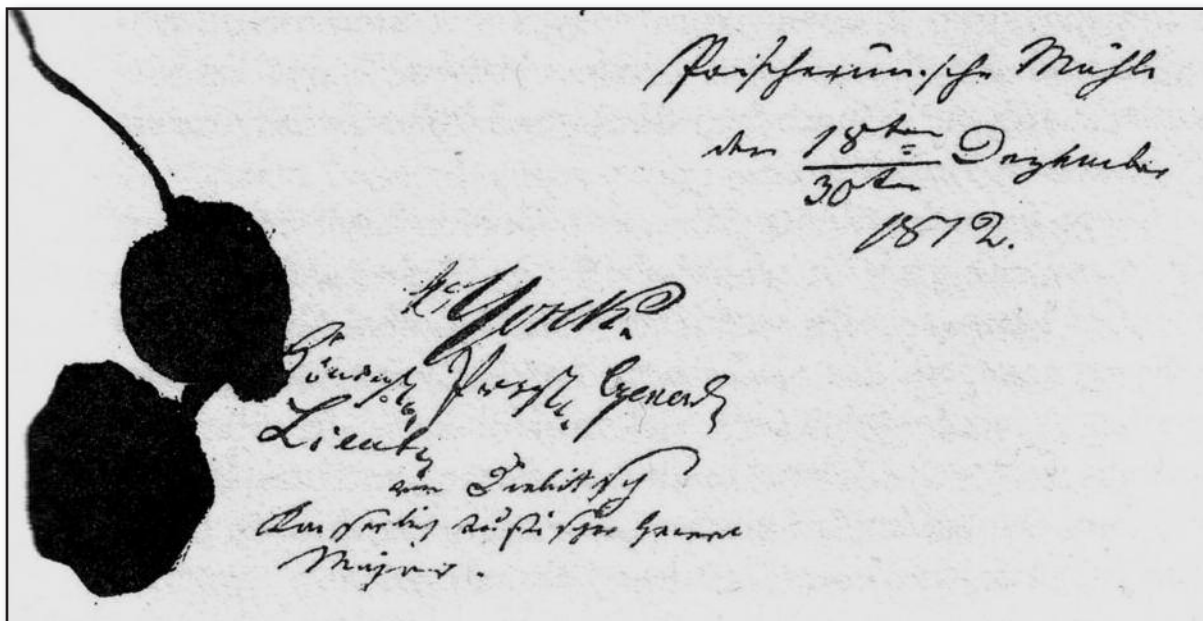 Poischerun.sche Mühle
den 18ten Dezember
30ten
1812.
v. Yorck.
Königl. Preuß. General
Lieut.
von Diebitsch
Kayserlich russischer General
Major.